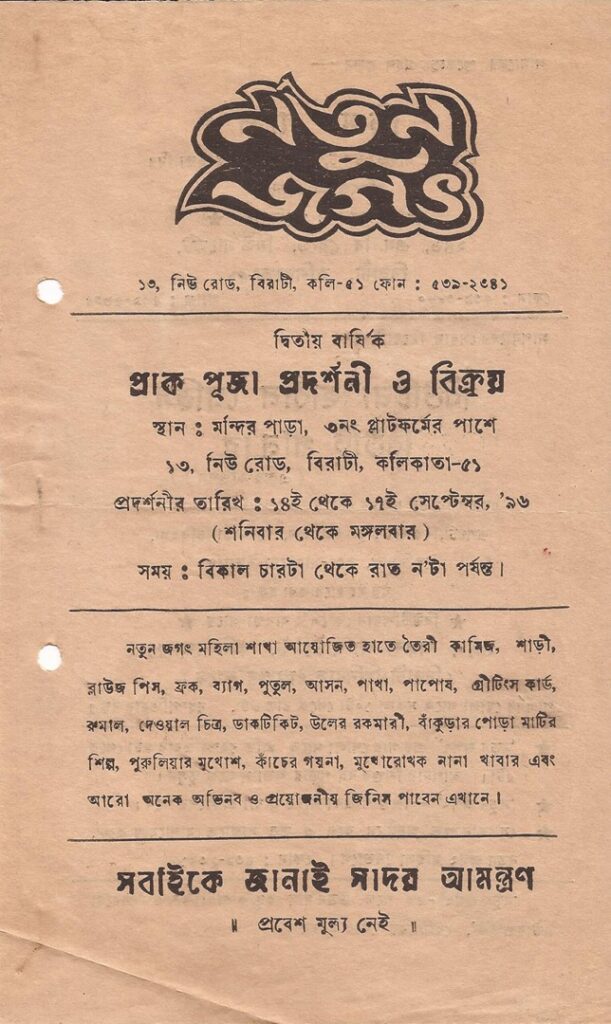 নতুন
জগৎ
১৩, নিউ রোড, বিরাটী, কলি-৫১ ফোন : ৫৩৯-২৩৪১
দ্বিতীয় বার্ষিক
প্রাক পূজা প্রদর্শনী ও বিক্রয়
স্থান : মন্দির পাড়া, ৩নং প্লাটফর্মের পাশে
১৩, নিউ রোড, বিরাটী, কলিকাতা-৫১
প্রদর্শনীর তারিখ : ১৪ই থেকে ১৭ই সেপ্টেম্বর, '৯৬
( শনিবার থেকে মঙ্গলবার )
সময় : বিকাল চারটা থেকে রাত ন'টা পর্যন্ত।
নতুন জগৎ মহিলা শাখা আয়োজিত হাতে তৈরী কামিজ, শাড়ী,
ব্লাউজ পিস, ফ্রক, ব্যাগ, পুতুল, আসন, পাখা, পাপোষ, গ্রীটিংস কার্ড,
রুমাল, দেওয়াল চিত্র, ডাকটিকিট, উলের রকমারী, বাঁকুড়ার পোড়া মাটির
শিল্প, পুরুলিয়ার মুখোশ, কাঁচের গয়না, মুখোরোখক নানা খাবার এবং
আরো অনেক অভিনব ও প্রয়োজনীয় জিনিস পাবেন এখানে।
সবাইকে জানাই সাদর আমন্ত্রণ
॥ প্রবেশ মূল্য নেই ॥